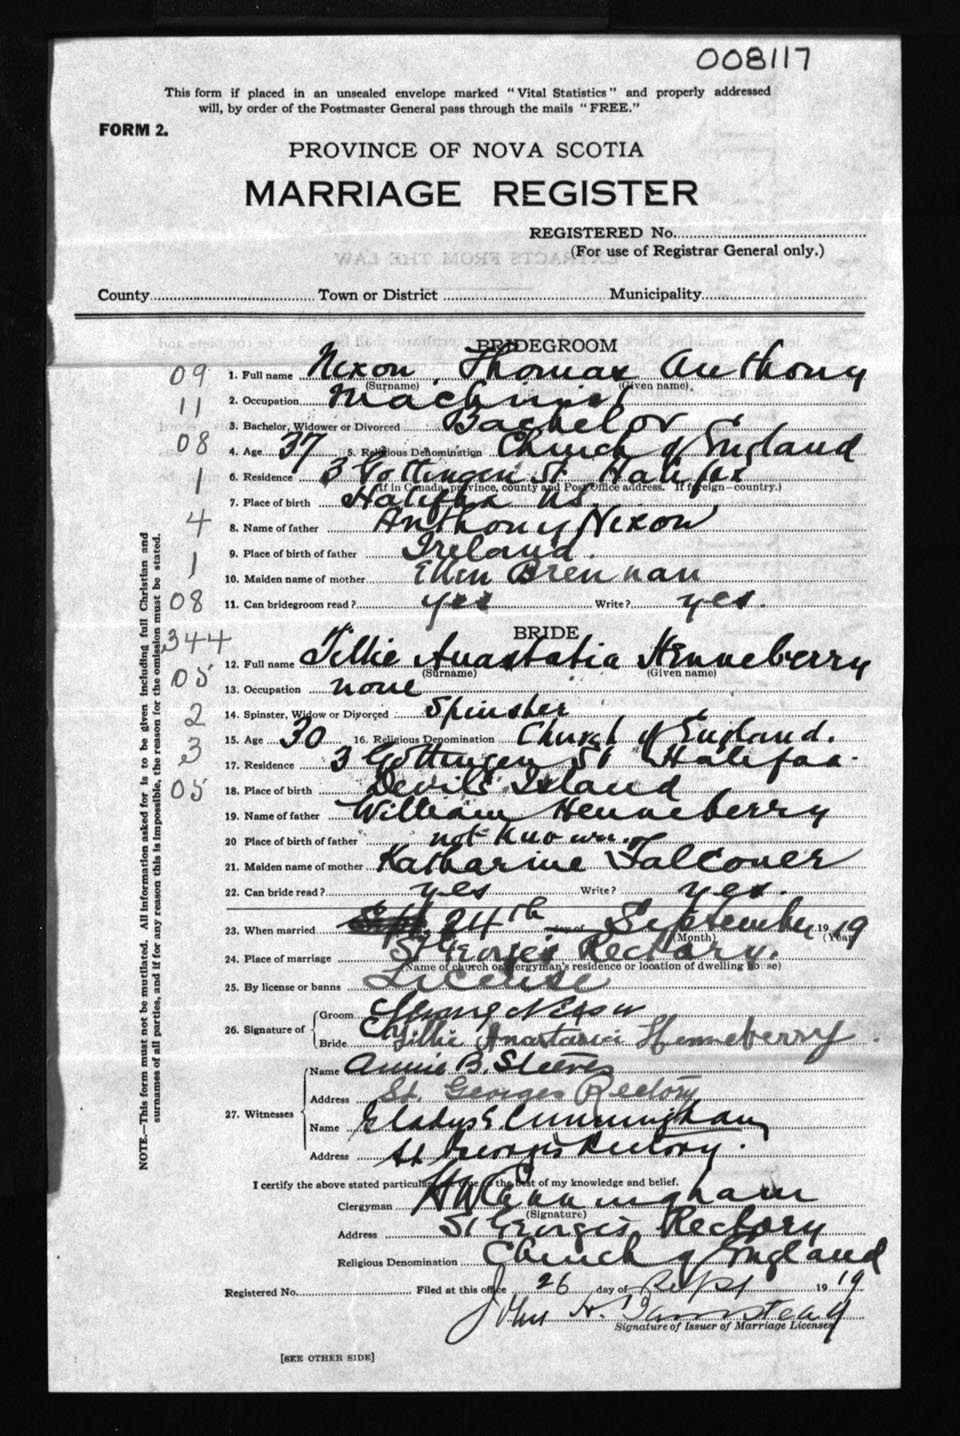 008117
This form if placed in an unsealed envelope marked "Vital Statistics" and properly addressed
will, by order of the Postmaster General pass through the mails "FREE."
FORM 2.
PROVINCE OF NOVA SCOTIA
MARRIAGE REGISTER
REGISTERED No.
(For use of Registrar General only.)
EXTRACTS FROM THE LAW
County Town or District Municipality
BRIDEGROOM
09 1. Full name Nixon Thomas Anthony
(Surname) (Given name)
11 2. Occupation Machinist
3. Bachelor, Widower or Divorced Bachelor
08 4. Age 37 5. Religious Denomination Church of England
1 6. Residence 3 Gottingen St Halifax
(If in Canada, province, county and Post Office address. If foreign—country.)
7. Place of birth Halifax NS
4 8. Name of father Anthony Nixon
9. Place of birth of father Ireland.
1 10. Maiden name of mother Ellen Brennan
08 11. Can bridegroom read? yes Write? yes.
BRIDE
344 12. Full name Tillie Anastatia Henneberry
(Surname) (Given name)
05 13. Occupation none
2 14. Spinster, Widow or Divorced Spinster
15. Age 30 16. Religious Denomination Church of England.
3 17. Residence 3 Gottingen St Halifax.
05 18. Place of birth Devil's Island
19. Name of father William Henneberry
20 Place of birth of father not known
21. Maiden name of mother Katharine Falconer
22. Can bride read? yes Write? yes.
23. When married 24th day of September 1919
(Month) (Year)
24. Place of marriage St George's Rectory.
(Name of church or clergyman's residence or location of dwelling house)
25. By license or banns License
26. Signature of Groom Nixon
Bride Tillie Anastasia Henneberry.
27. Witnesses Name Annie B. Steeves
Address St. Georges Rectory
Name Gladys E Cunningham
Address St Georges Rectory.
I certify the above stated particulars are true to the best of my knowledge and belief.
Clergyman H W Cunningham
(Signature)
Address St George's Rectory
Religious Denomination Church of England
Registered No. Filed at this office 26 day of Sept 1919
John H.
Signature of Issuer of Marriage Licenses
[SEE OTHER SIDE]
NOTE.—This form must not be mutilated. All information asked for is to be given including full Christian and
surnames of all parties, and if for any reason this is impossible, the reason for the omission must be stated.